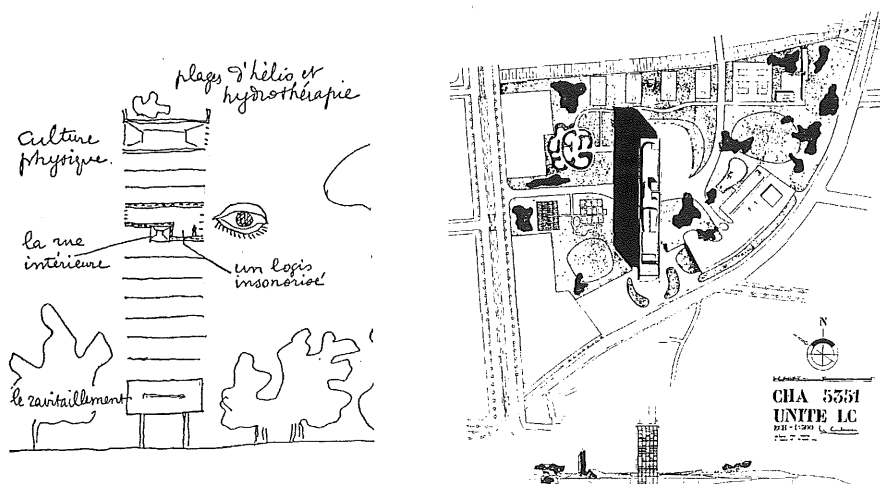 plages d'hélio et
hydrothérapie
culture
physique.
la rue
intérieure
un logis
insonorisé
le ravitaillement
N
CHA 5351
UNITE LC
ECH - 1:500